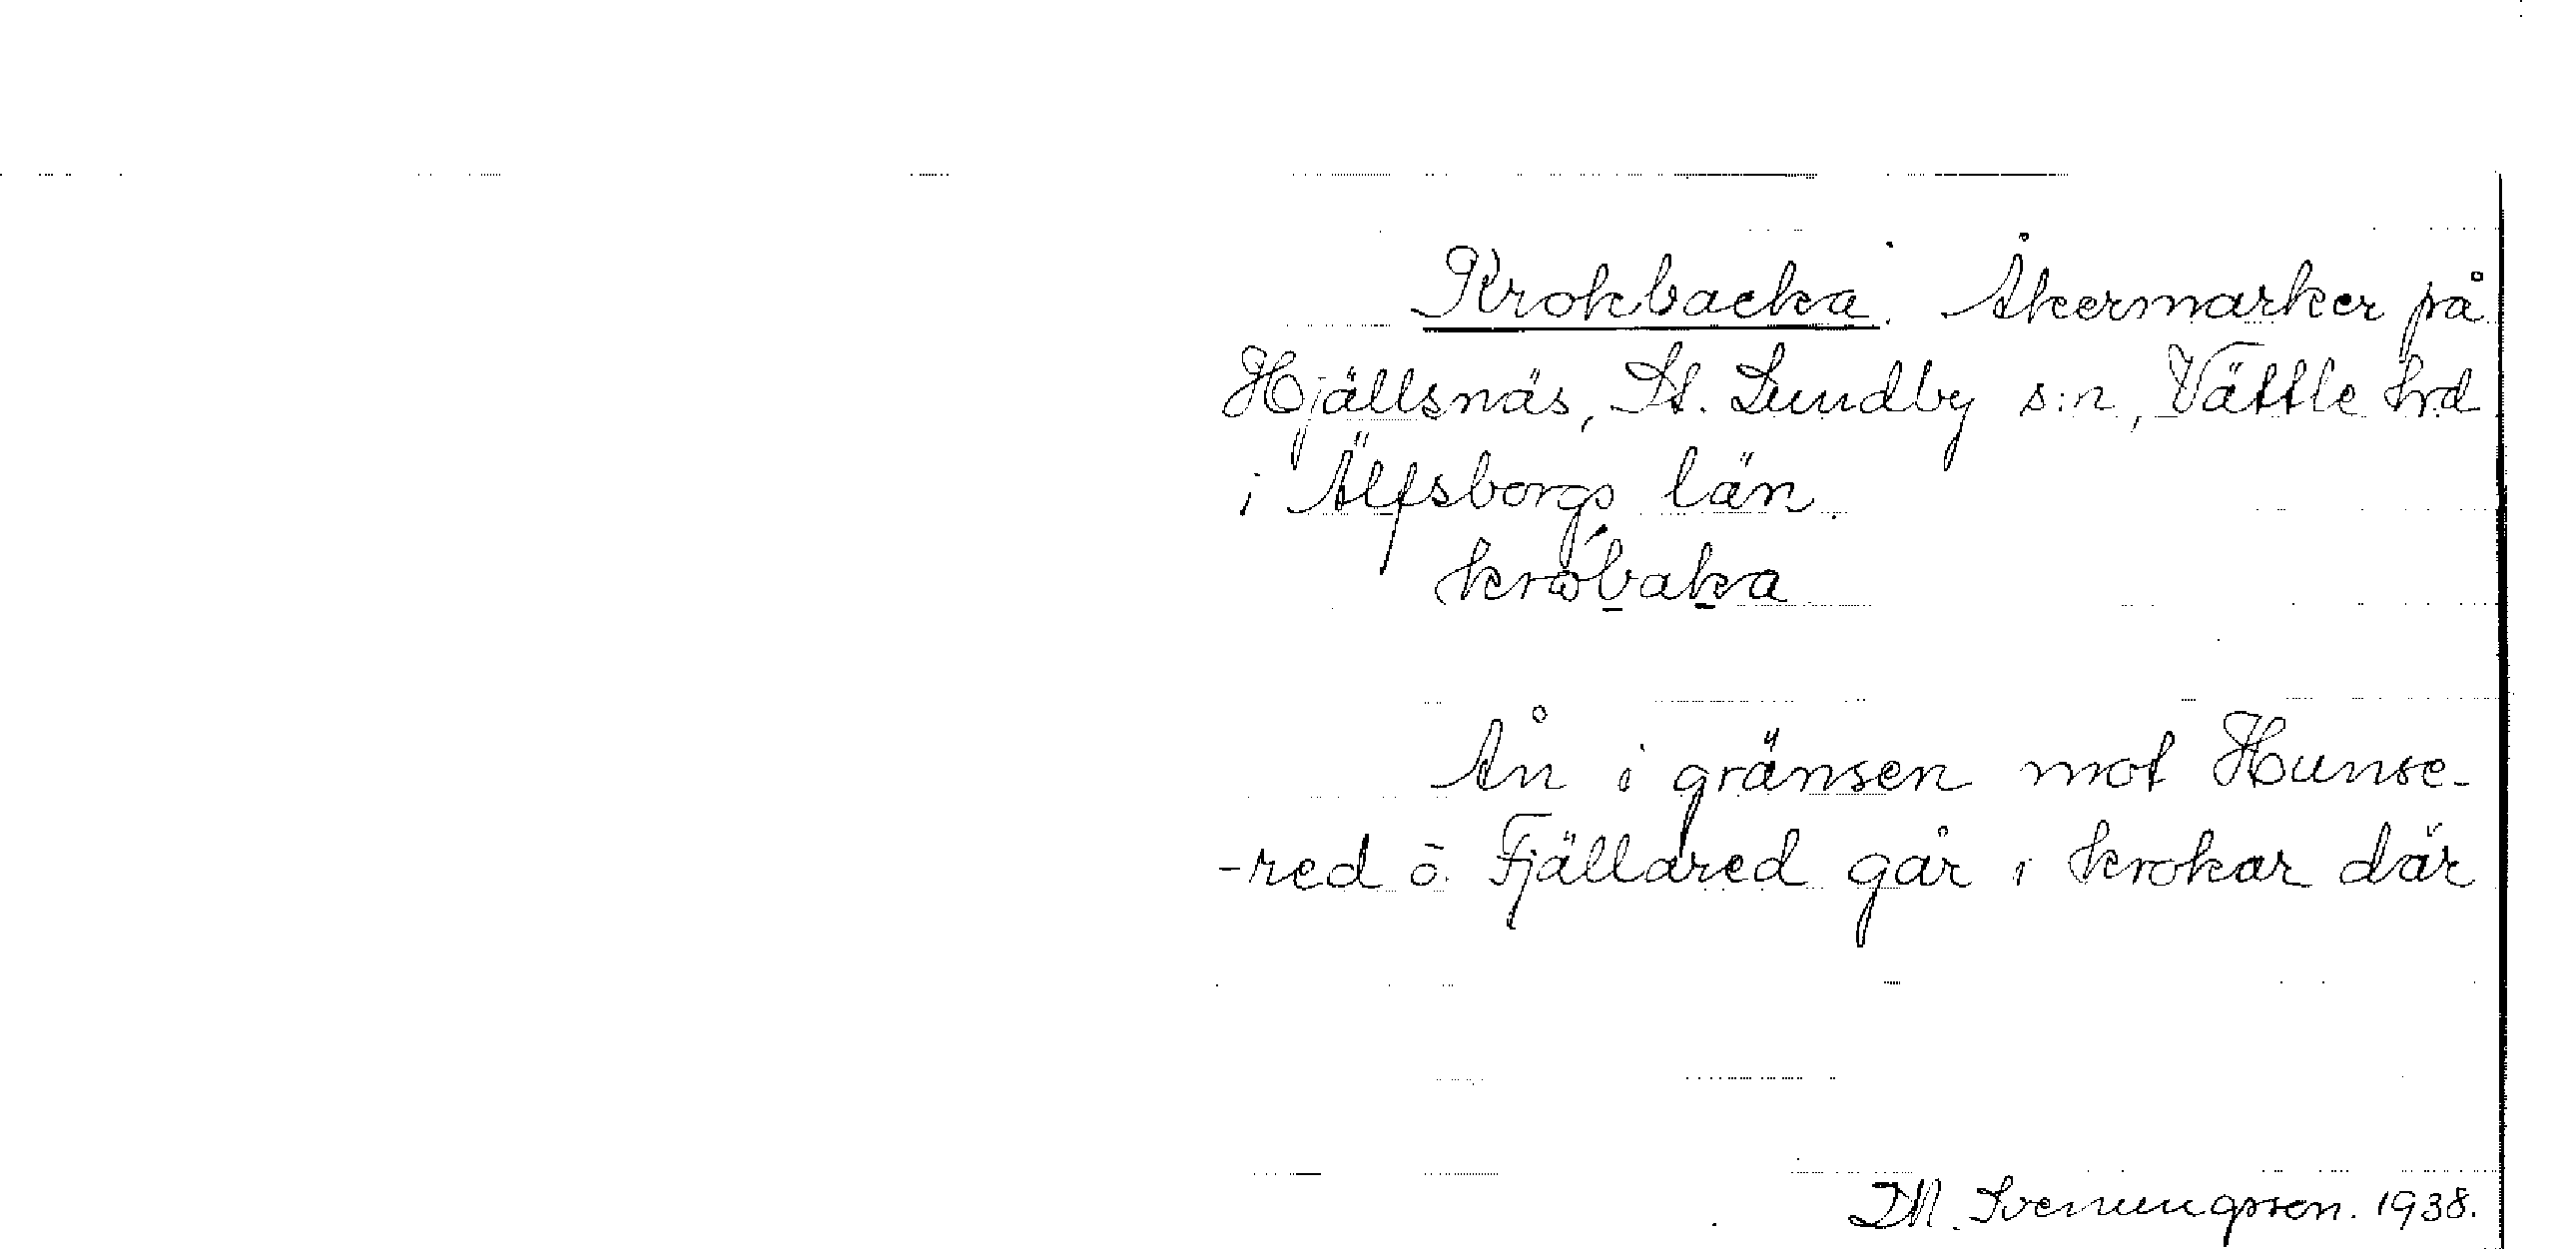 Krokbacka. Åkermarker på
Hjällsnäs, St. Lundby s:n, Vättle hrd
i Älfsborgs län.
kro̍baka
Ån i gränsen mot Hunse-
-red ō. Fjällared går i krokar där
DM. Svenungsson. 1938.